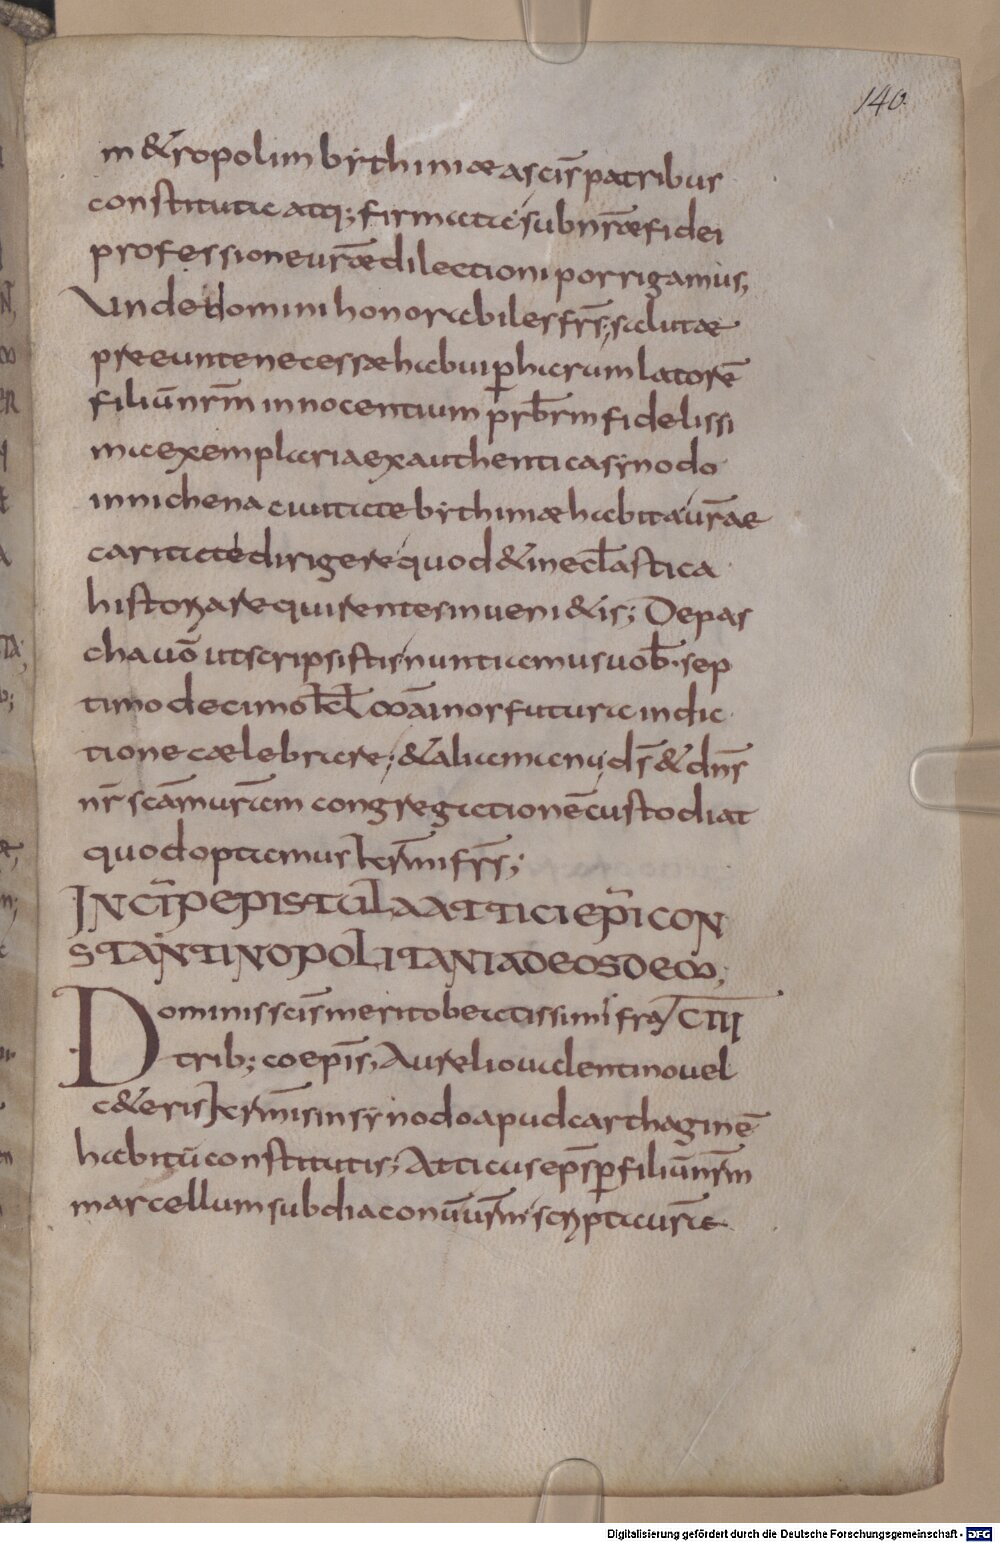 140
m&ropolim bythiniæ a scīs patribus
constitutaatq; firmata sub nr̄æ fidei
professione ur̄æ dilectioni porrigamus,
Unde domini honorabiles frs̄; salutæ
preeunte necessæ habui ꝑ harum latorē
filiū nr̄m innocentium prb̄rm fidelissi
ma exemplaria ex authentica synodo
in nichena ciuitate bythiniæ habita ur̄ae
caritate dirigere quod & in ecl̄astica
historia requirentes inueni&is; De pas
cha uō ut scripsistis nuntiamus uob̄. sep
timo decimo kl̄ maīnor futura indic
tione cælebrare; & alia manu; ds̄ & dn̄s
nr̄ scām ur̄am congregationē custodiat
quod optamus kar̄mi frs̄;
INCIP̄ EPISTULA ATTICI EPĪ CON
STANTINOPOLITANI AD EOSDEM;
Dominis scīs merito beatissimi fra CIII
trib; coepīs, Aurelio ualentino uel
c&eris kar̄mis in synodo apud carthaginē
habitū constitutis; Atticus ep̄s ꝑ filiū nr̄m
marcellum subdiaconū ur̄m scripta ur̄a
Digitalisierung gefördert durch die Deutsche Forschungsgemeinschaft - DFG